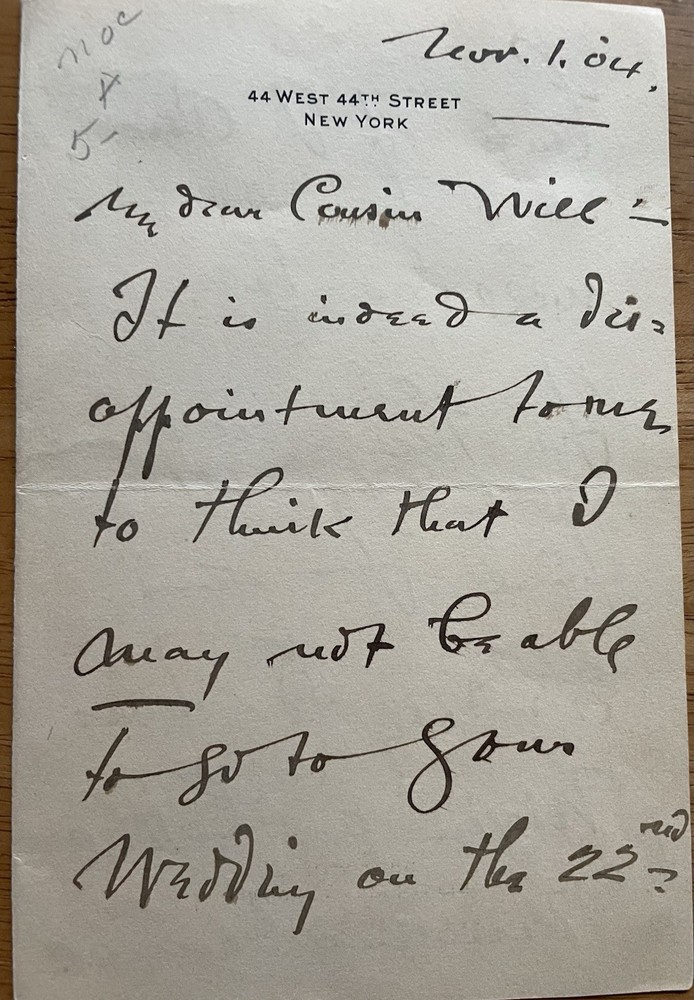 Nov. 1. 04.
44 WEST 44TH STREET
NEW YORK
My dear Cousin Will:—
It is indeed a dis=
appointment to me
to think that I
may not be able
to go to your
Wedding on the 22nd